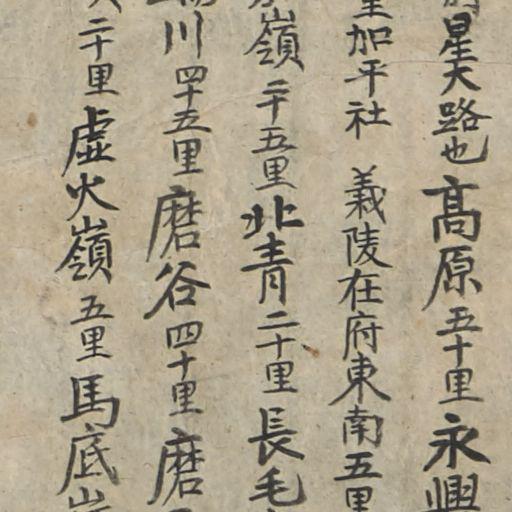 星大路也高原五十里永興
里加平社 義陵在府東南五里
嶺二十五里北青二十里長毛
川四十五里磨谷四十里磨
二十里虛火嶺五里馬底嶺